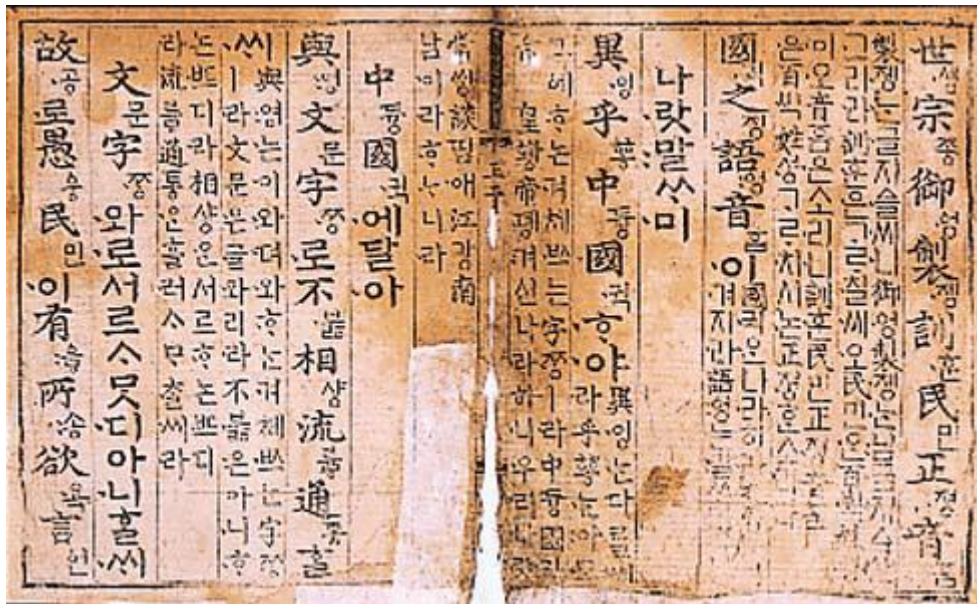 世솅宗종御엉製졩訓훈民민正졍音ᅙᅳᆷ
製졩는글지ᅀᅳᆯ씨니御엉製졩는님금지ᅀᅳ샨
그리라訓훈은ᄀᆞᄅᆞ칠씨오民민ᄋᆞᆫ百ᄇᆡᆨ姓셩
이오音ᅙᅳᆷ은소리니訓훈民민正졍音ᅙᅳᆷ
은百ᄇᆡᆨ姓셩ᄀᆞᄅᆞ치시논正졍ᄒᆞᆫ소리라
國귁之징語ᅌᅥᆼ音ᅙᅳᆷ이國귁ᄋᆞᆫ나라히라
겨지라語ᅌᅥᆼ는
나랏말ᄊᆞ미
異잉乎ᅘᅩᆼ中듕國귁ᄒᆞ야異잉는다ᄅᆞᆯ씨
라乎ᅘᅩᆼ는아모
그ᅌᅦᄒᆞ논겨체쓰는字ᄍᆞᆼㅣ라中듕國귁
皇ᅘᅪᆼ帝뎽겨신나라히니우리나랏
常썅談땀애江강南
남이라ᄒᆞᄂᆞ니라
中듕國귁에달아
與영文문字ᄍᆞᆼ로不붏相샹流륳通통ᄒᆞᆯ
ᄊᆡ與영는이와뎌와ᄒᆞ는겨체쓰는字ᄍᆞᆼ
ㅣ라文문은글와리라不붏은아니ᄒᆞ
논ᄠᅳ디라相샹ᄋᆞᆫ서르ᄒᆞ논ᄠᅳ디
라流륳通통ᄋᆞᆫ흘러ᄉᆞᄆᆞᄎᆞᆯ씨라
文문字ᄍᆞᆼ와로서르ᄉᆞᄆᆞᆺ디아니ᄒᆞᆯᄊᆡ
故공로愚ᅌᅮᆼ民민이有ᅌᅮᇢ所송欲욕言ᅌᅥᆫ